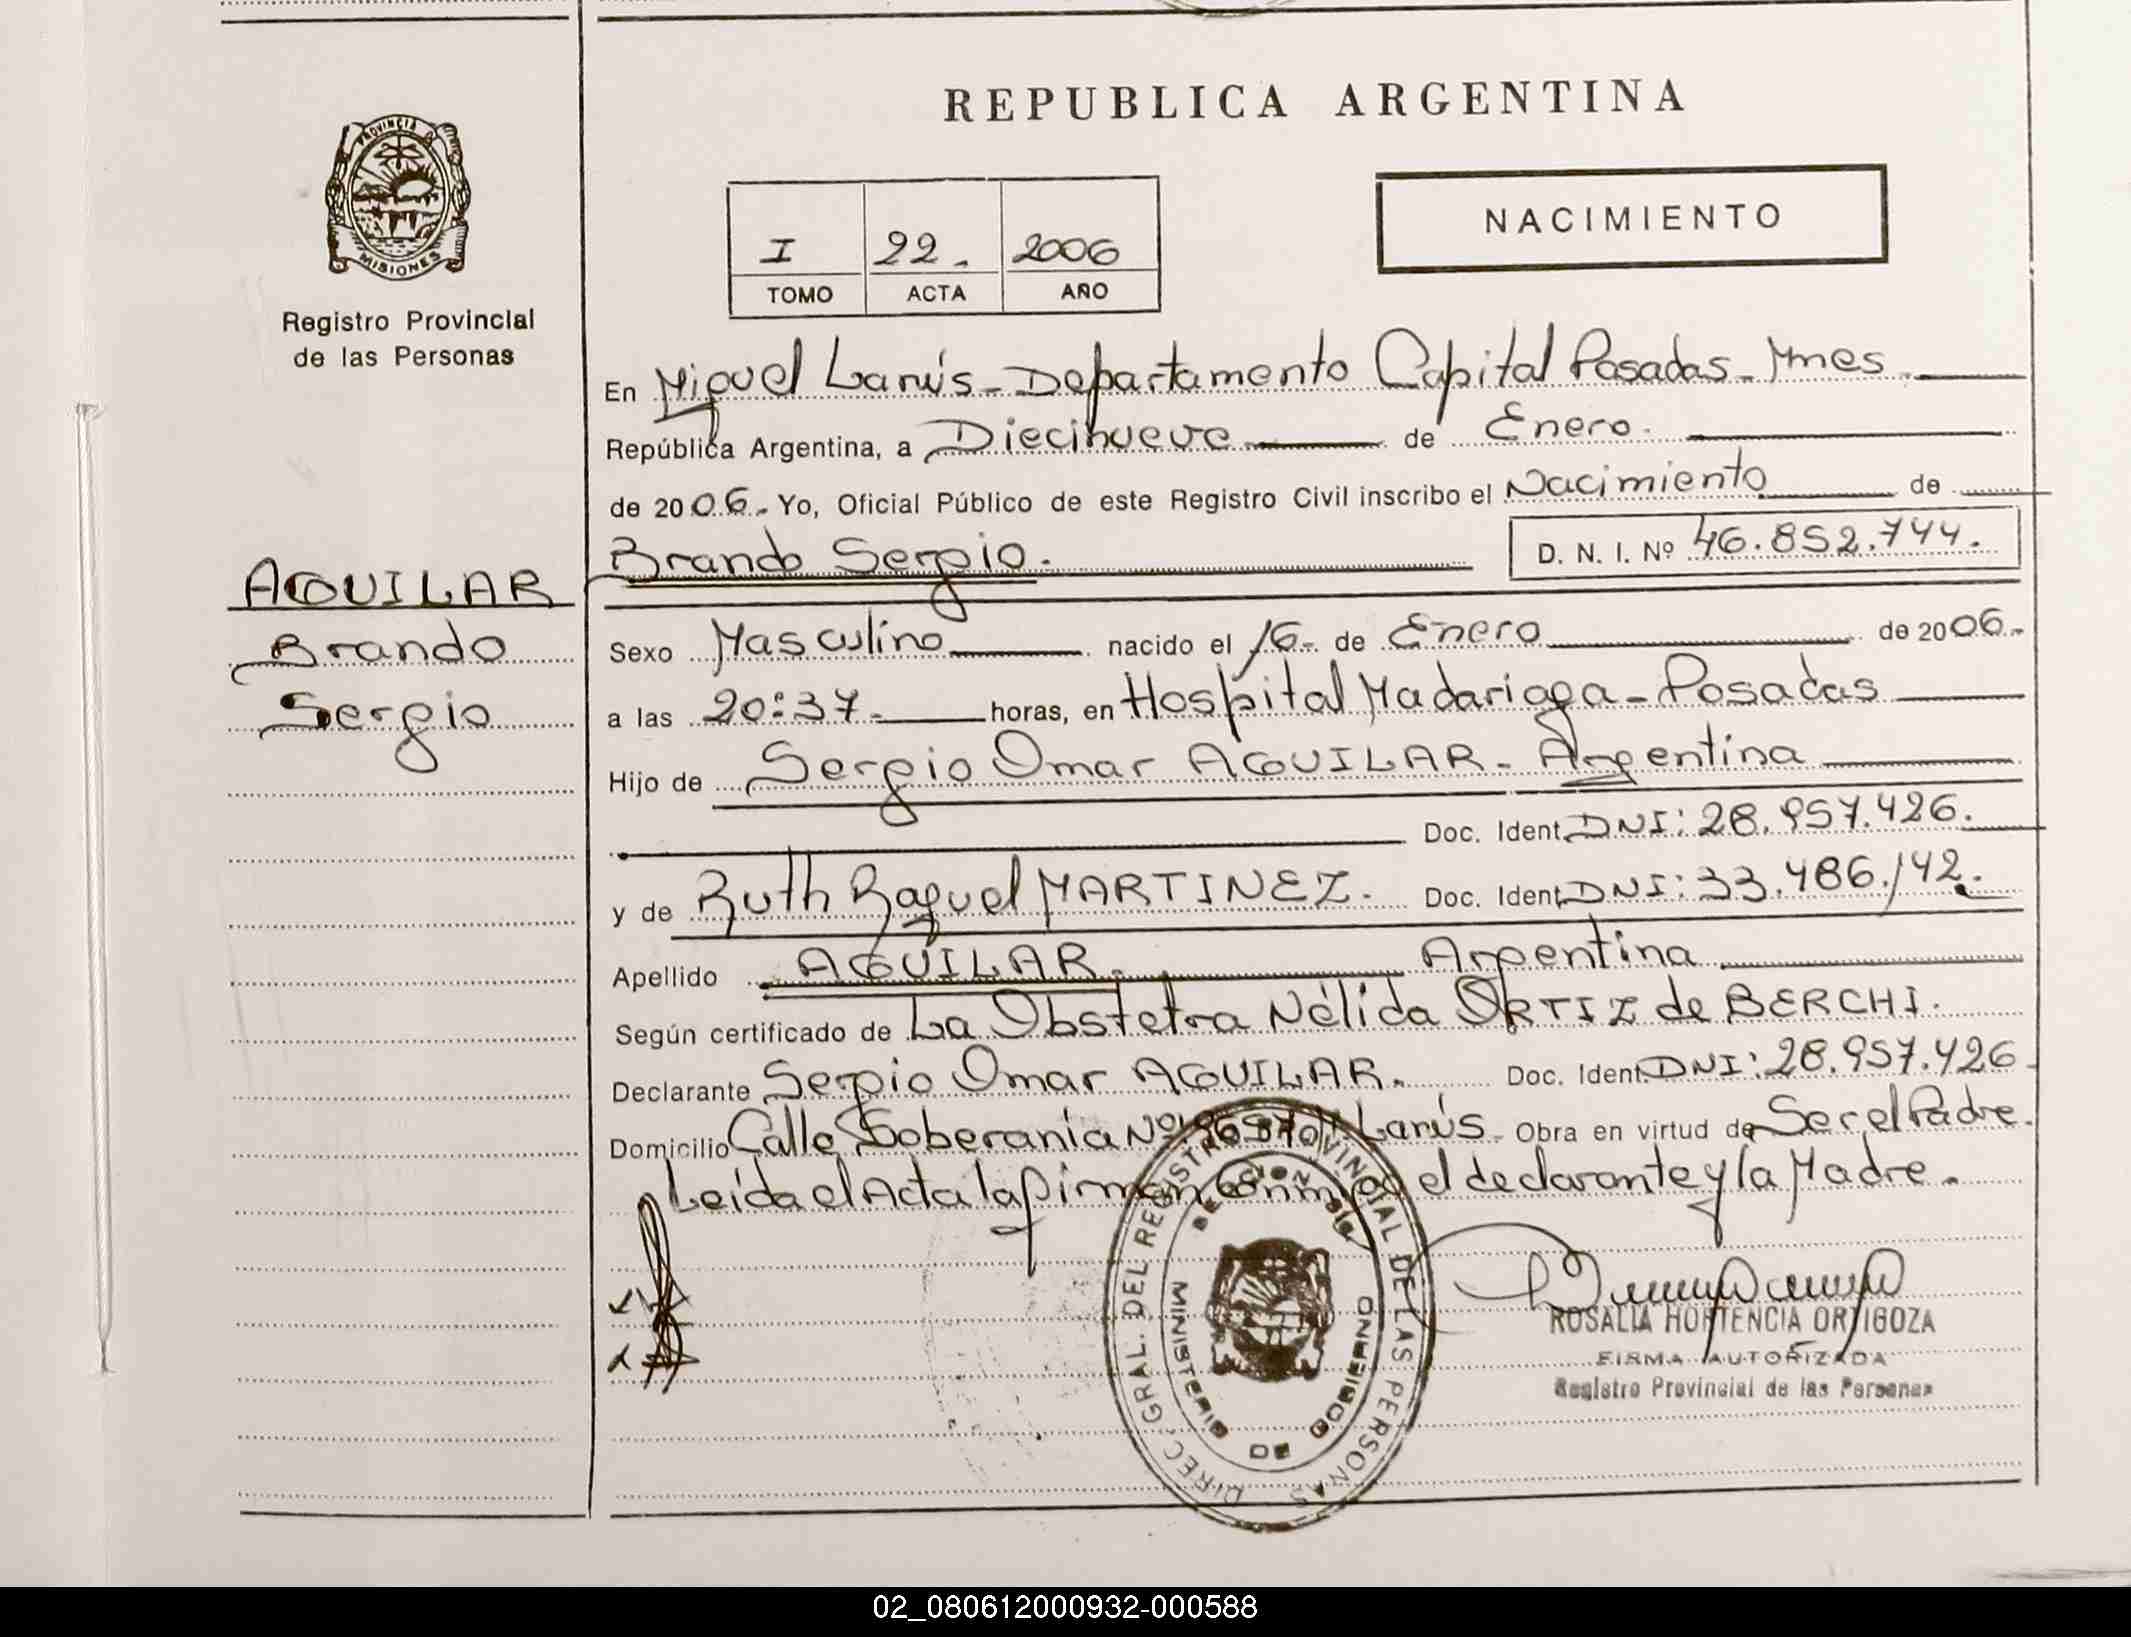 REPUBLICA ARGENTINA
PROVINCIA D
MISIONES
Registro Provincial
de las Personas
NACIMIENTO
I 22. 2006
TOMO ACTA AÑO
En Miguel Lanús - Departamento Capital Posadas - Mnes.
República Argentina, a Diecinueve de Enero.
de 2006. Yo, Oficial Público de este Registro Civil inscribo el Nacimiento de
Brando Sergio. D. N. I. Nº 46.852.744.
AGUILAR
Brando
Sergio
Sexo Masculino nacido el 16 de Enero de 2006.
a las 20:37 horas, en Hospital Madariaga - Posadas
Hijo de Sergio Omar AGUILAR - Argentina
Doc. Ident. DNI: 28.957.426.
y de Ruth Raquel MARTINEZ. Doc. Ident. DNI: 33.486.142.
Apellido AGUILAR. Argentina
Según certificado de La Obstetra Nélida ORTIZ de BERCHI.
Declarante Sergio Omar AGUILAR. Doc. Ident. DNI: 28.957.426
Domicilio Calle Soberanía Nº Lanús. Obra en virtud de Ser el Padre.
Leída el Acta la firman conmigo el declarante y la Madre.
DIREC. GRAL. DEL REGISTRO PROVINCIAL DE LAS PERSONAS
MINISTERIO DE GOBIERNO
ROSALIA HORTENCIA ORTIGOZA
FIRMA AUTORIZADA
Registro Provincial de las Personas
02_080612000932-000588